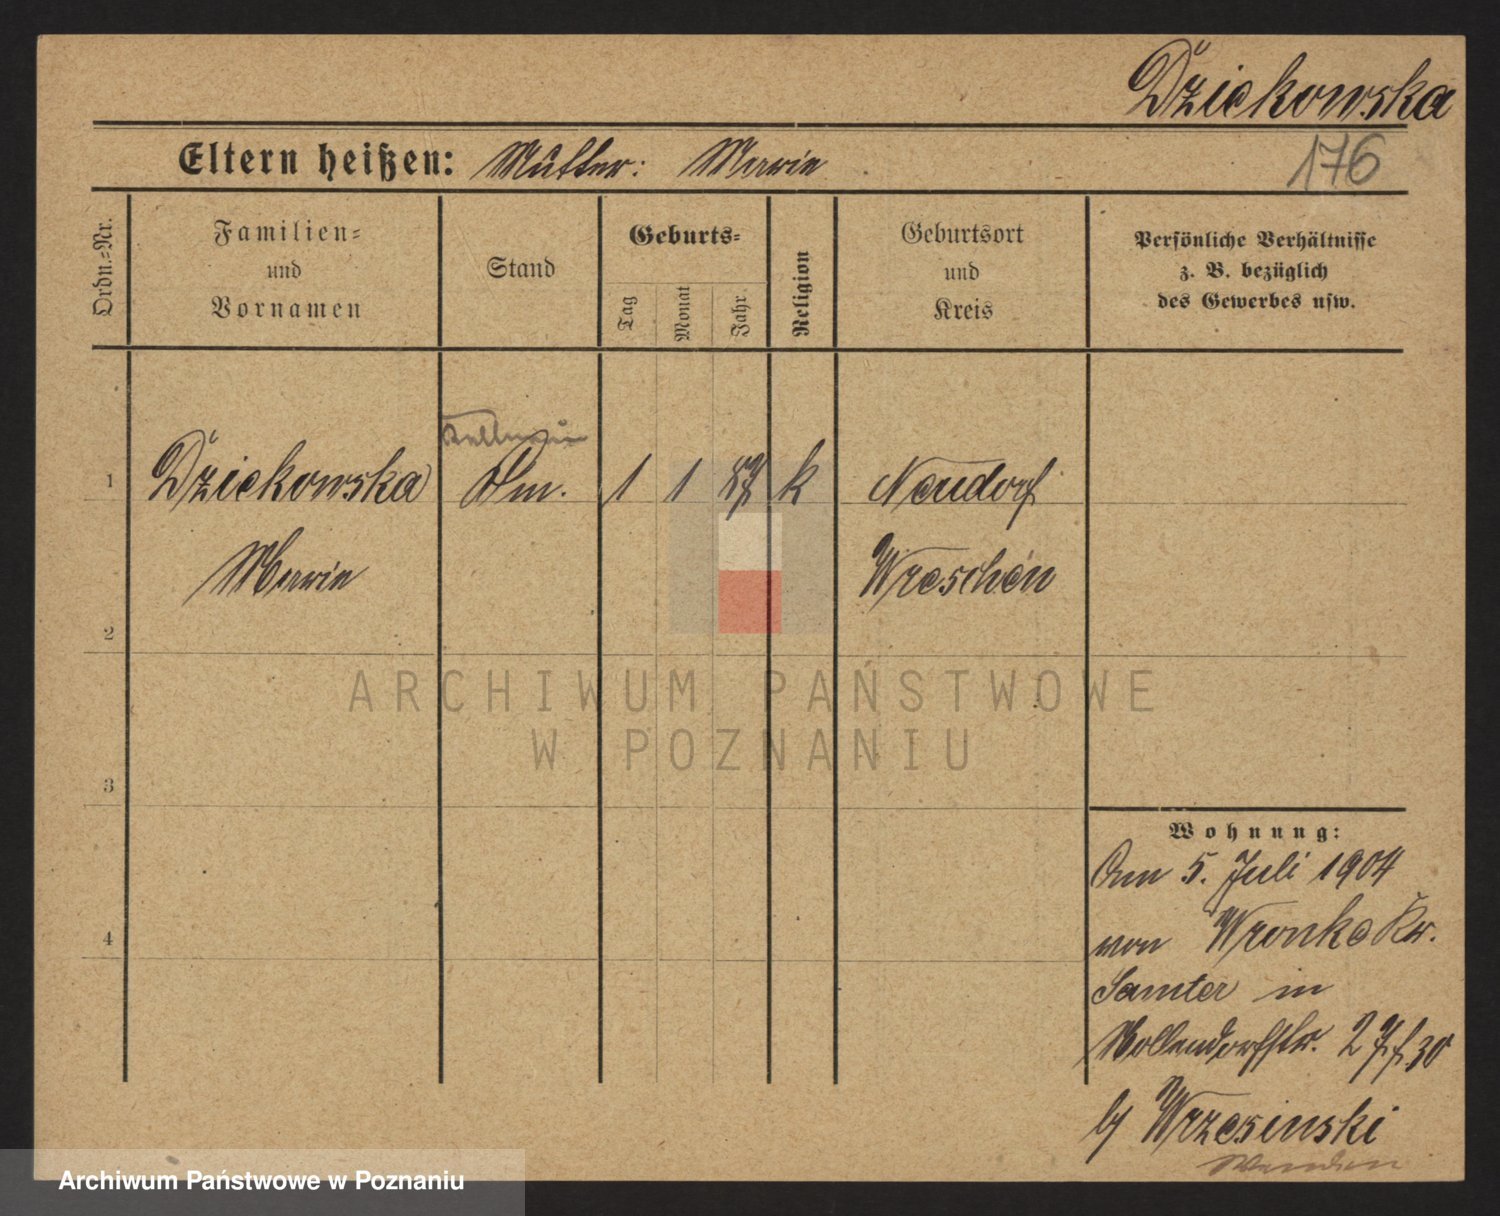 Dźiekowska
Eltern heißen: Mutter: Marie
176
Ordn.=Nr.
Familien=
und
Vornamen
Stand
Geburts=
Tag
Monat
Jahr
Religion
Geburtsort
und
Kreis
Persönliche Verhältnisse
z. B. bezüglich
des Gewerbes usw.
Kellnerin
1 Dźiekowska 1 1 87 k Neudorf
Marie Wreschen
2
3
4
ARCHIWUM PAŃSTWOWE
W POZNANIU
Wohnung:
5. Juli 1904
von Wronke Kr.
Samter in
27
b/ Wrzesinski
Wenden
Archiwum Państwowe w Poznaniu